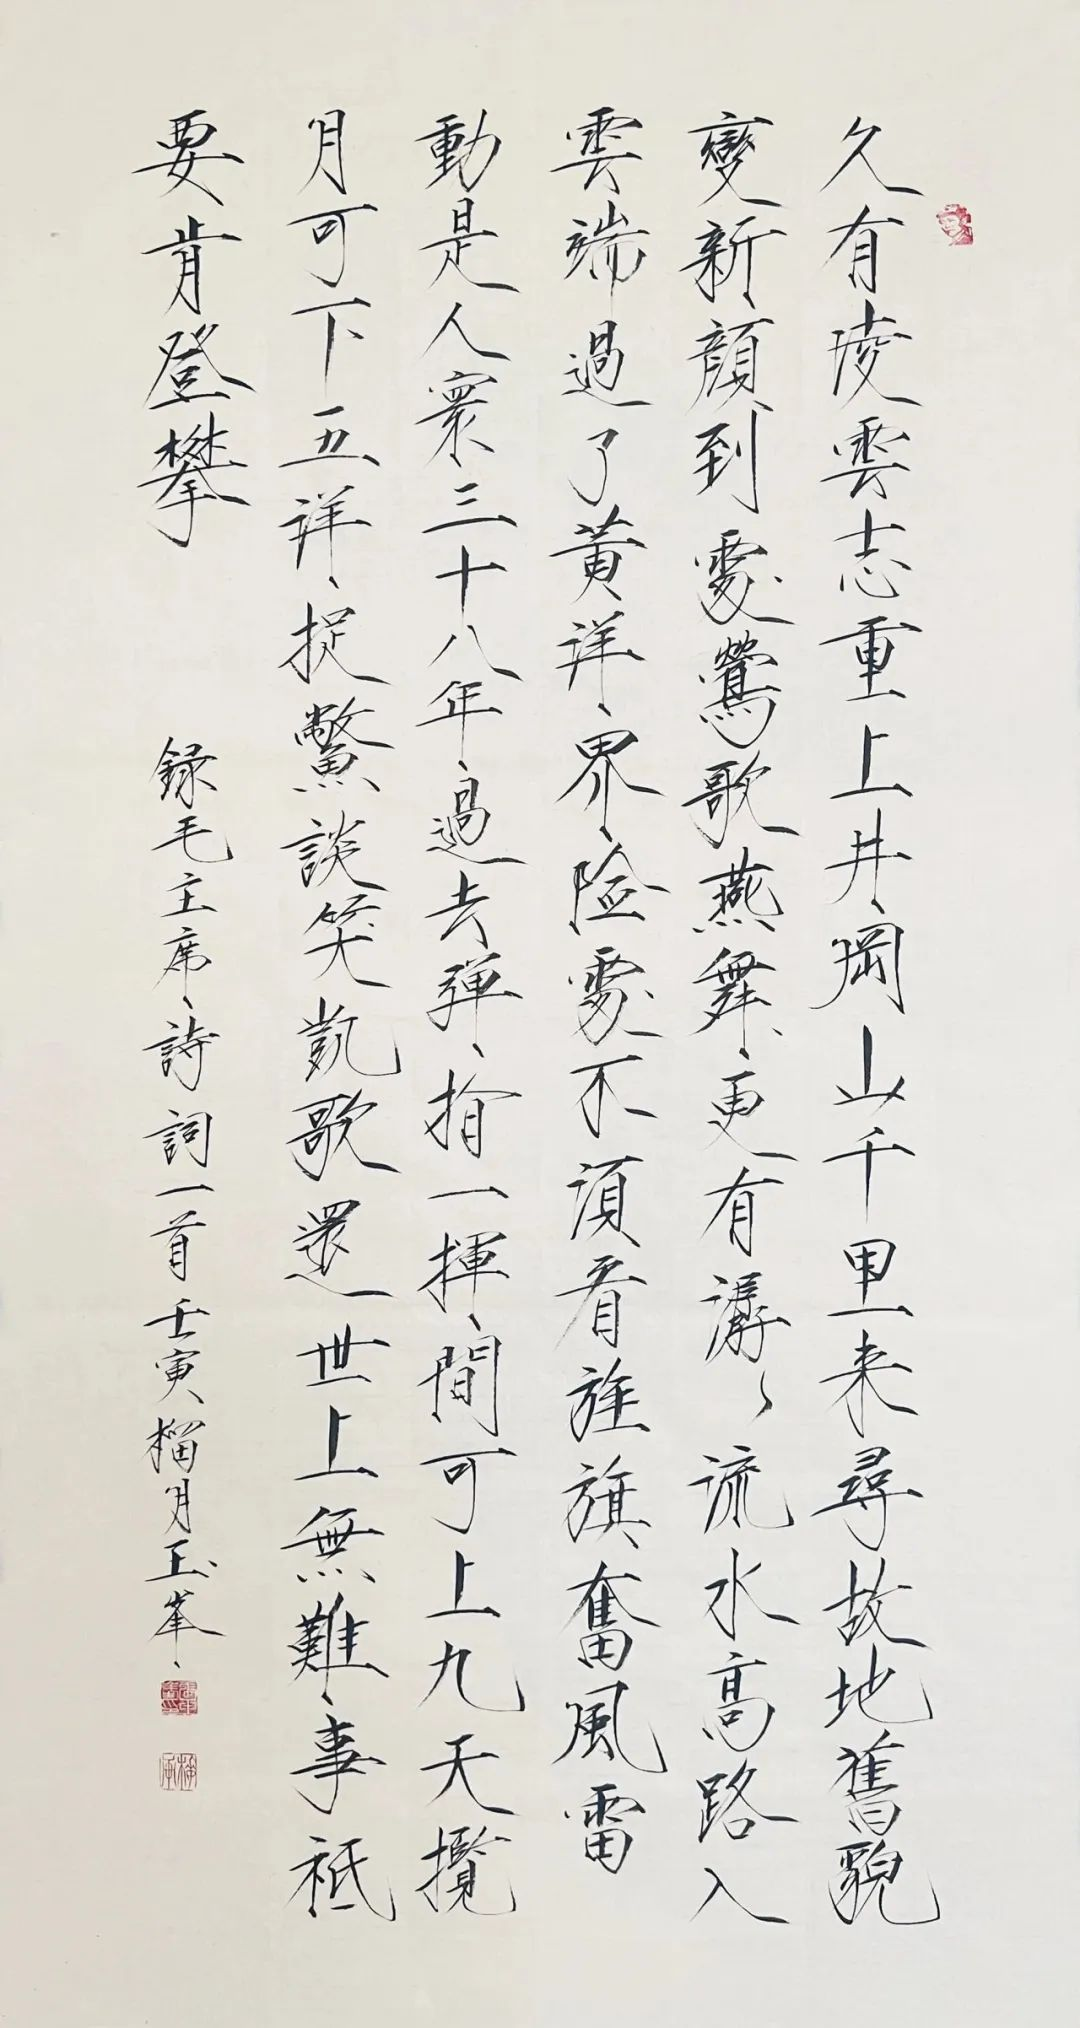 久有陵雲志重上井岡山千里来尋故地舊貌
變新顏到處鶯歌燕舞更有潺〻流水高路入
雲端過了黄洋界險處不須看旌旗奮風雷
動是人寰三十八年過去彈指一揮間可上九天攬
月可下五洋捉鱉談笑凱歌還世上無難事祇
要肯登攀
録毛主席詩詞一首壬寅榴月玉峯